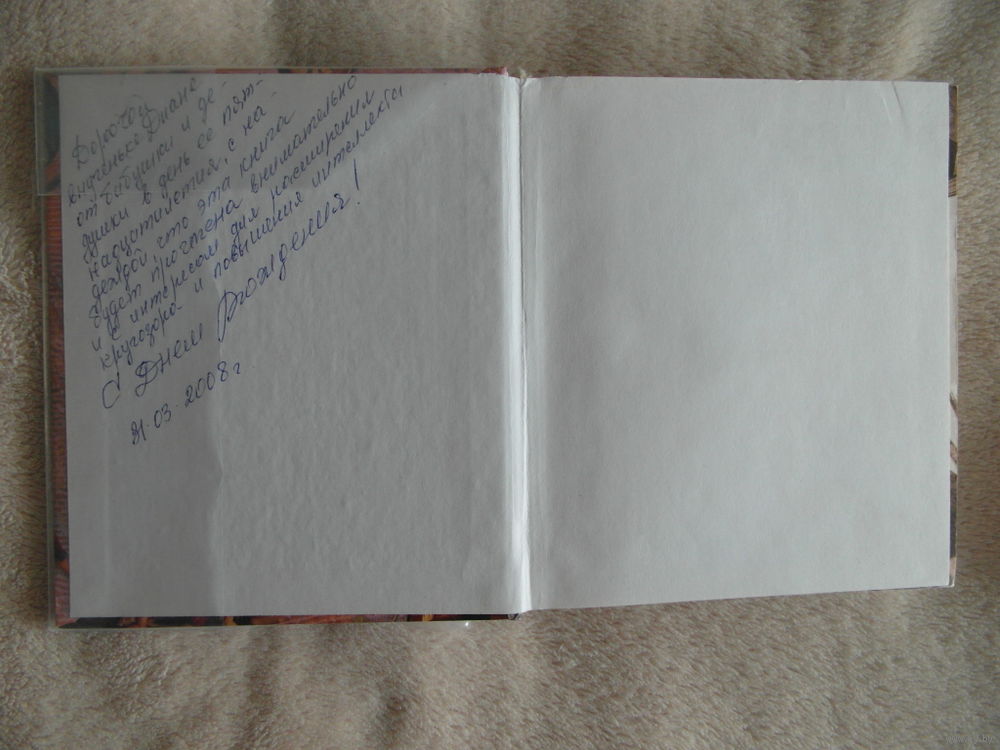 Дорогой
внученьке Диане
от бабушки и де-
душки в день её пят-
надцатилетия, с на-
деждой, что эта книга
будет прочтена внимательно
и с интересом для расширения
кругозора и повышения интеллекта
С Днём Рождения!
21.03.2008г.